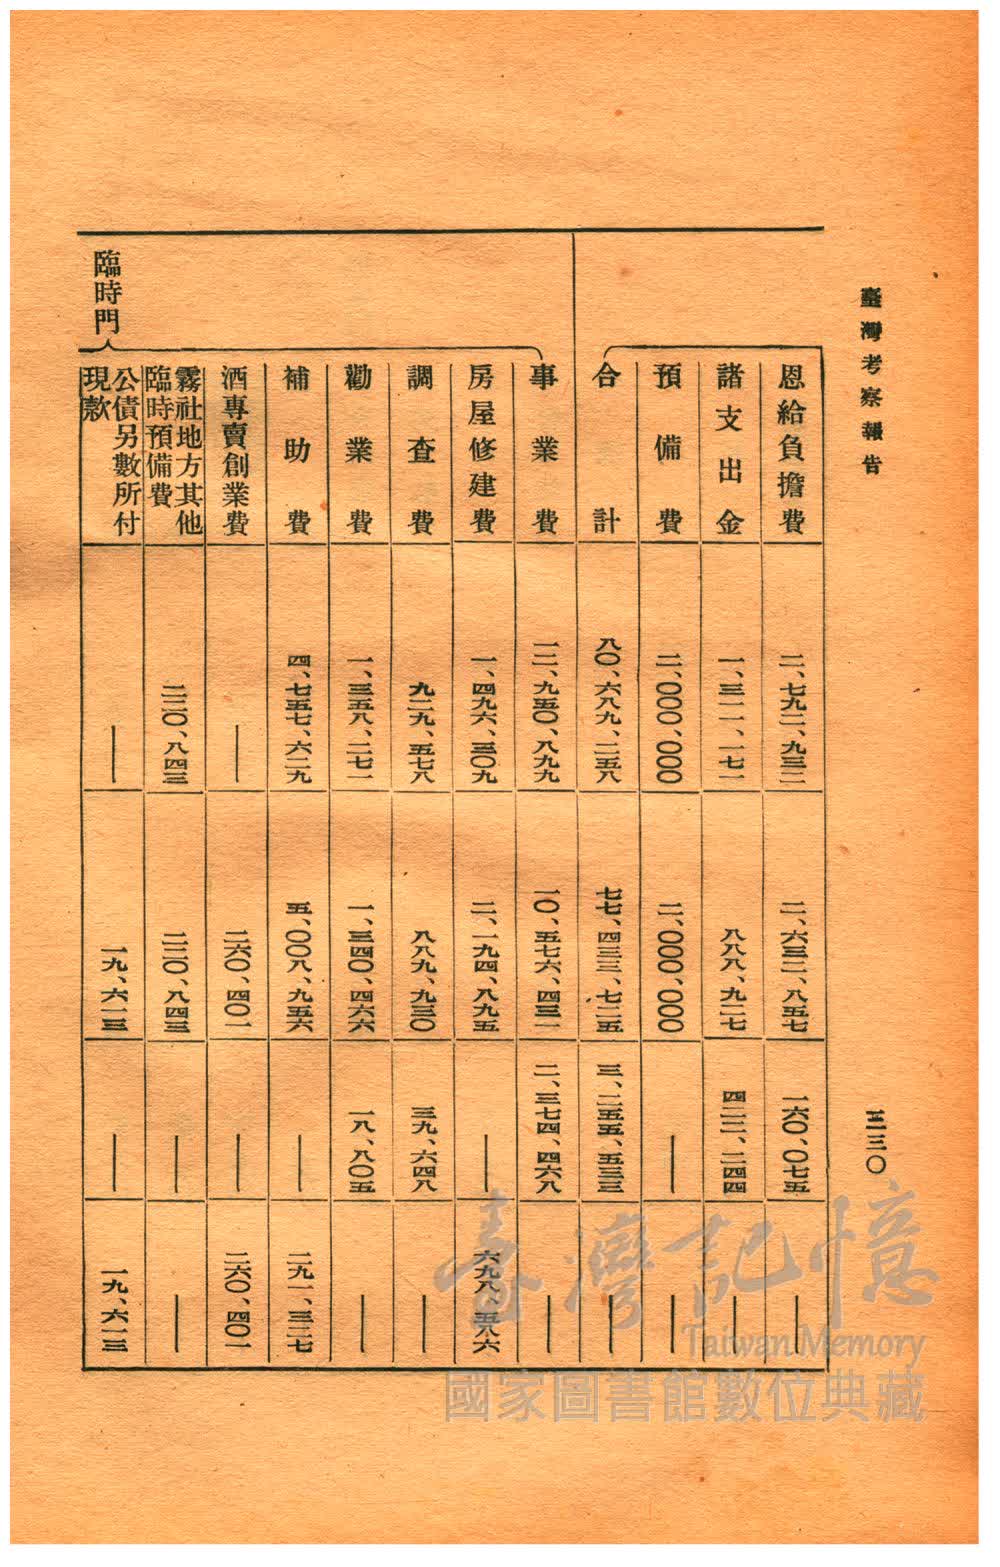 臺灣考察報告
三三〇
恩給負擔費 二、七九二、九三二 二、六三二、八五七 一六〇、〇七五 ——
諸支出金 一、三一一、一七一 八八八、九二七 四二二、二四四 ——
預備費 二、〇〇〇、〇〇〇 二、〇〇〇、〇〇〇 —— ——
合計 八〇、六八九、二五八 七七、四三三、七二五 三、二五五、五三三 ——
臨時門
事業費 一二、九五〇、八九九 一〇、五七六、四三一 二、三七四、四六八 ——
房屋修建費 一、四九六、三〇九 二、一九四、八九五 —— 六九八、五八六
調查費 九二九、五七八 八八九、九三〇 三九、六四八 ——
勸業費 一、三五八、二七一 一、三四〇、四六六 一八、八〇五 ——
補助費 四、七五七、六二九 五、〇〇八、九五六 —— 二九一、三二七
酒專賣創業費 —— 二六〇、四〇一 —— 二六〇、四〇一
霧社地方其他
臨時預備費 二三〇、八四三 二三〇、八四三 —— ——
公債另數所付
現款 —— 一九、六一三 —— 一九、六一三
臺灣記憶
Taiwan Memory
國家圖書館數位典藏